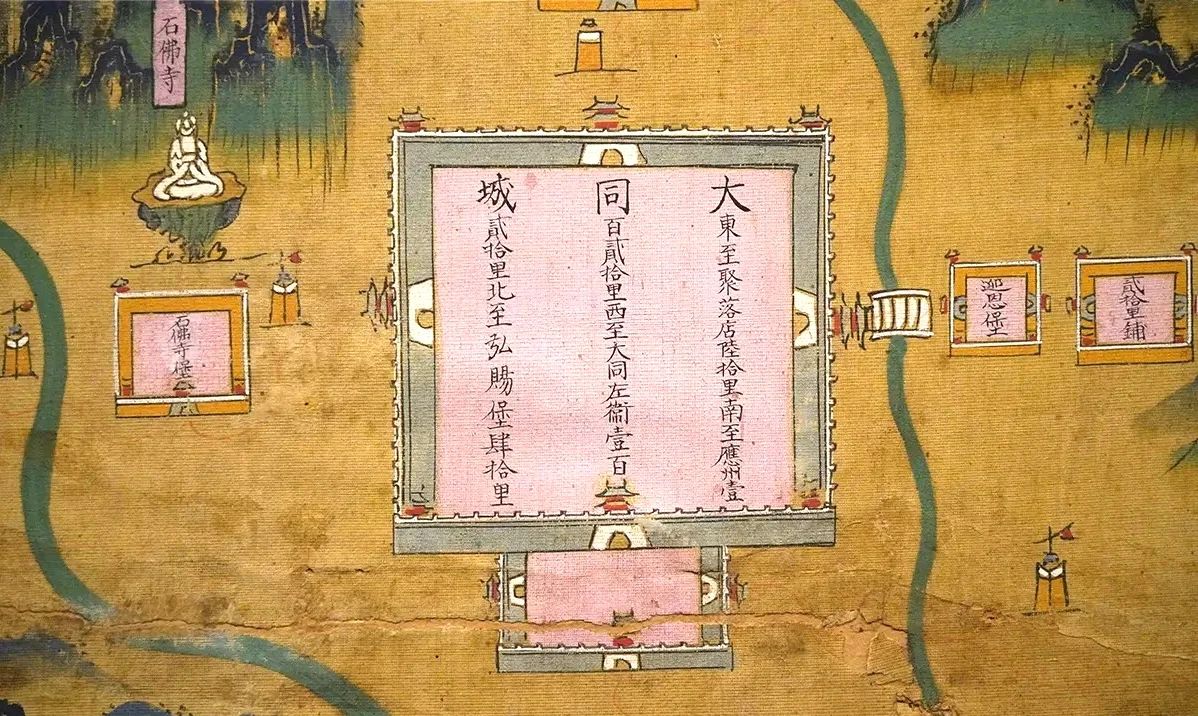 大東至聚落店陸拾里南至應州壹
同百貳拾里西至大同左衞壹百
城貳拾里北至弘賜堡肆拾里
石佛寺
石佛寺堡
迎恩堡
貳拾里鋪